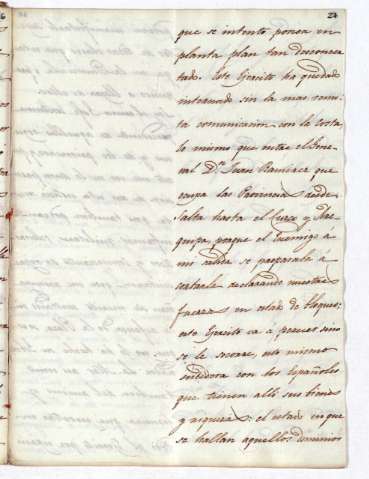 24
que se intentó poner en
planta plan tan desconcer
tado. Este Egercito ha quedado
internado sin la mas remo-
ta comunicacion con la Costa
lo mismo que entre el Gene-
ral Dn. Juan Ramirez que
ocupa las Provincias desde
Salta hasta el Cuzco y Are-
quipa, porque el Enemigo á
mi salida se preparaba á
cortarle declarando nuestras
fuerzas en estado de bloqueo;
este Egercito vá á perecer sino
se le socorre, esto mismo
sucederá con los Españoles
que tienen allí sus bienes
y riquezas: el estado en que
se hallan aquellos dominios